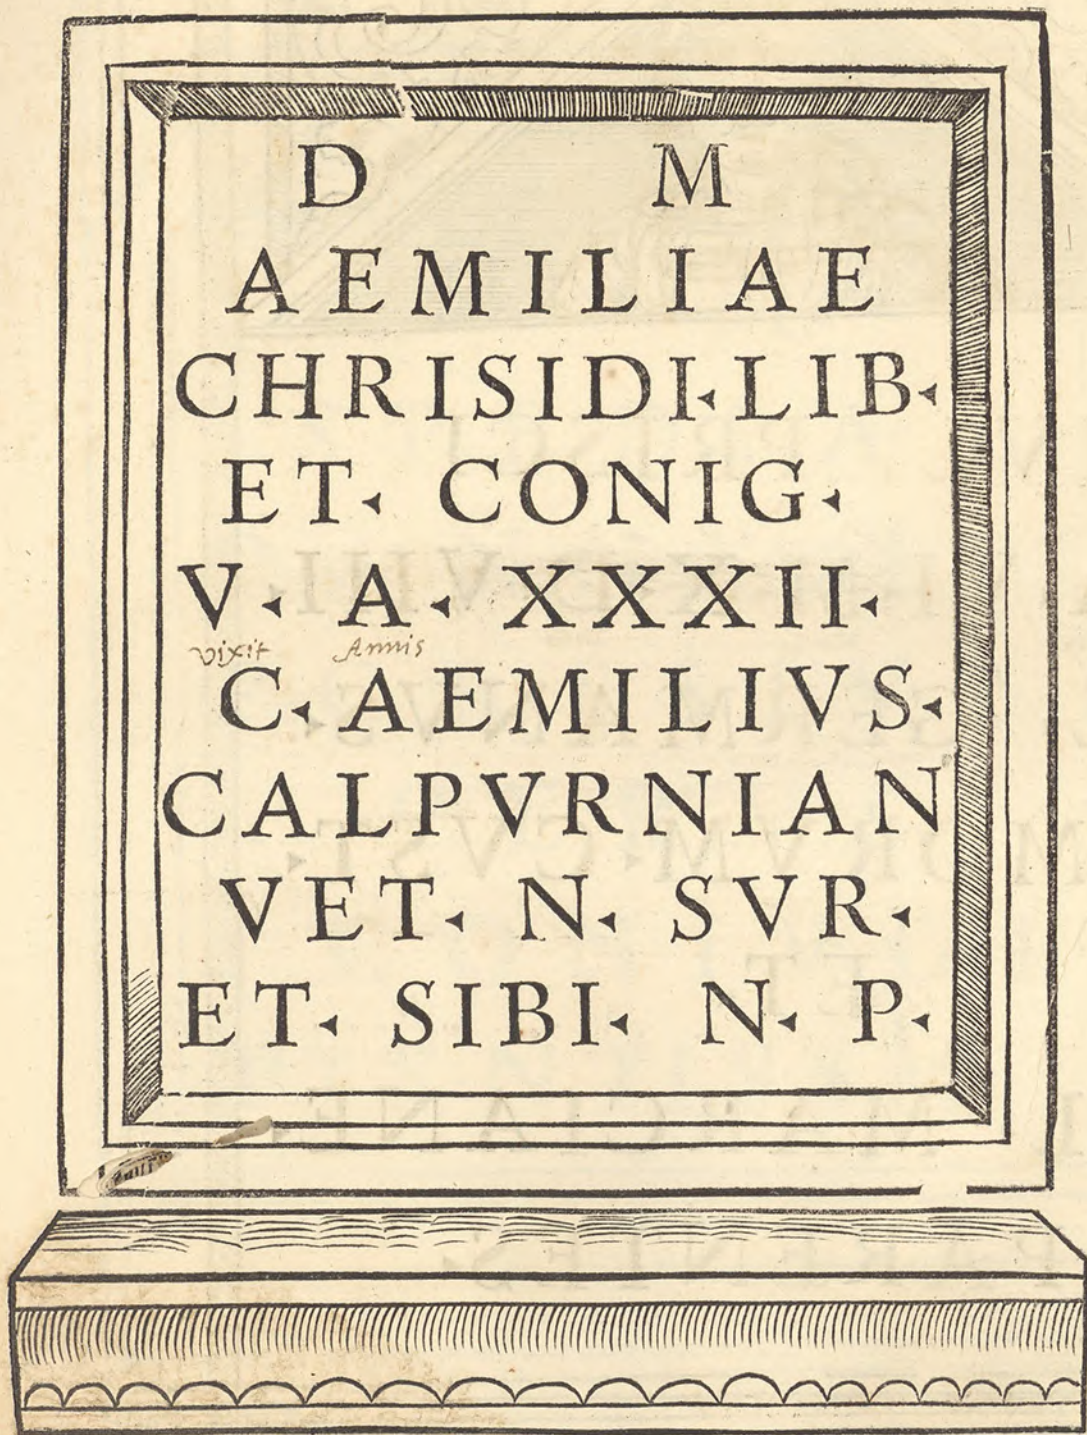 D M
AEMILIAE
CHRISIDI LIB
ET CONIG
V A XXXII
vixit Annis
C AEMILIVS
CALPVRNIAN
VET N SVR
ET SIBI N P